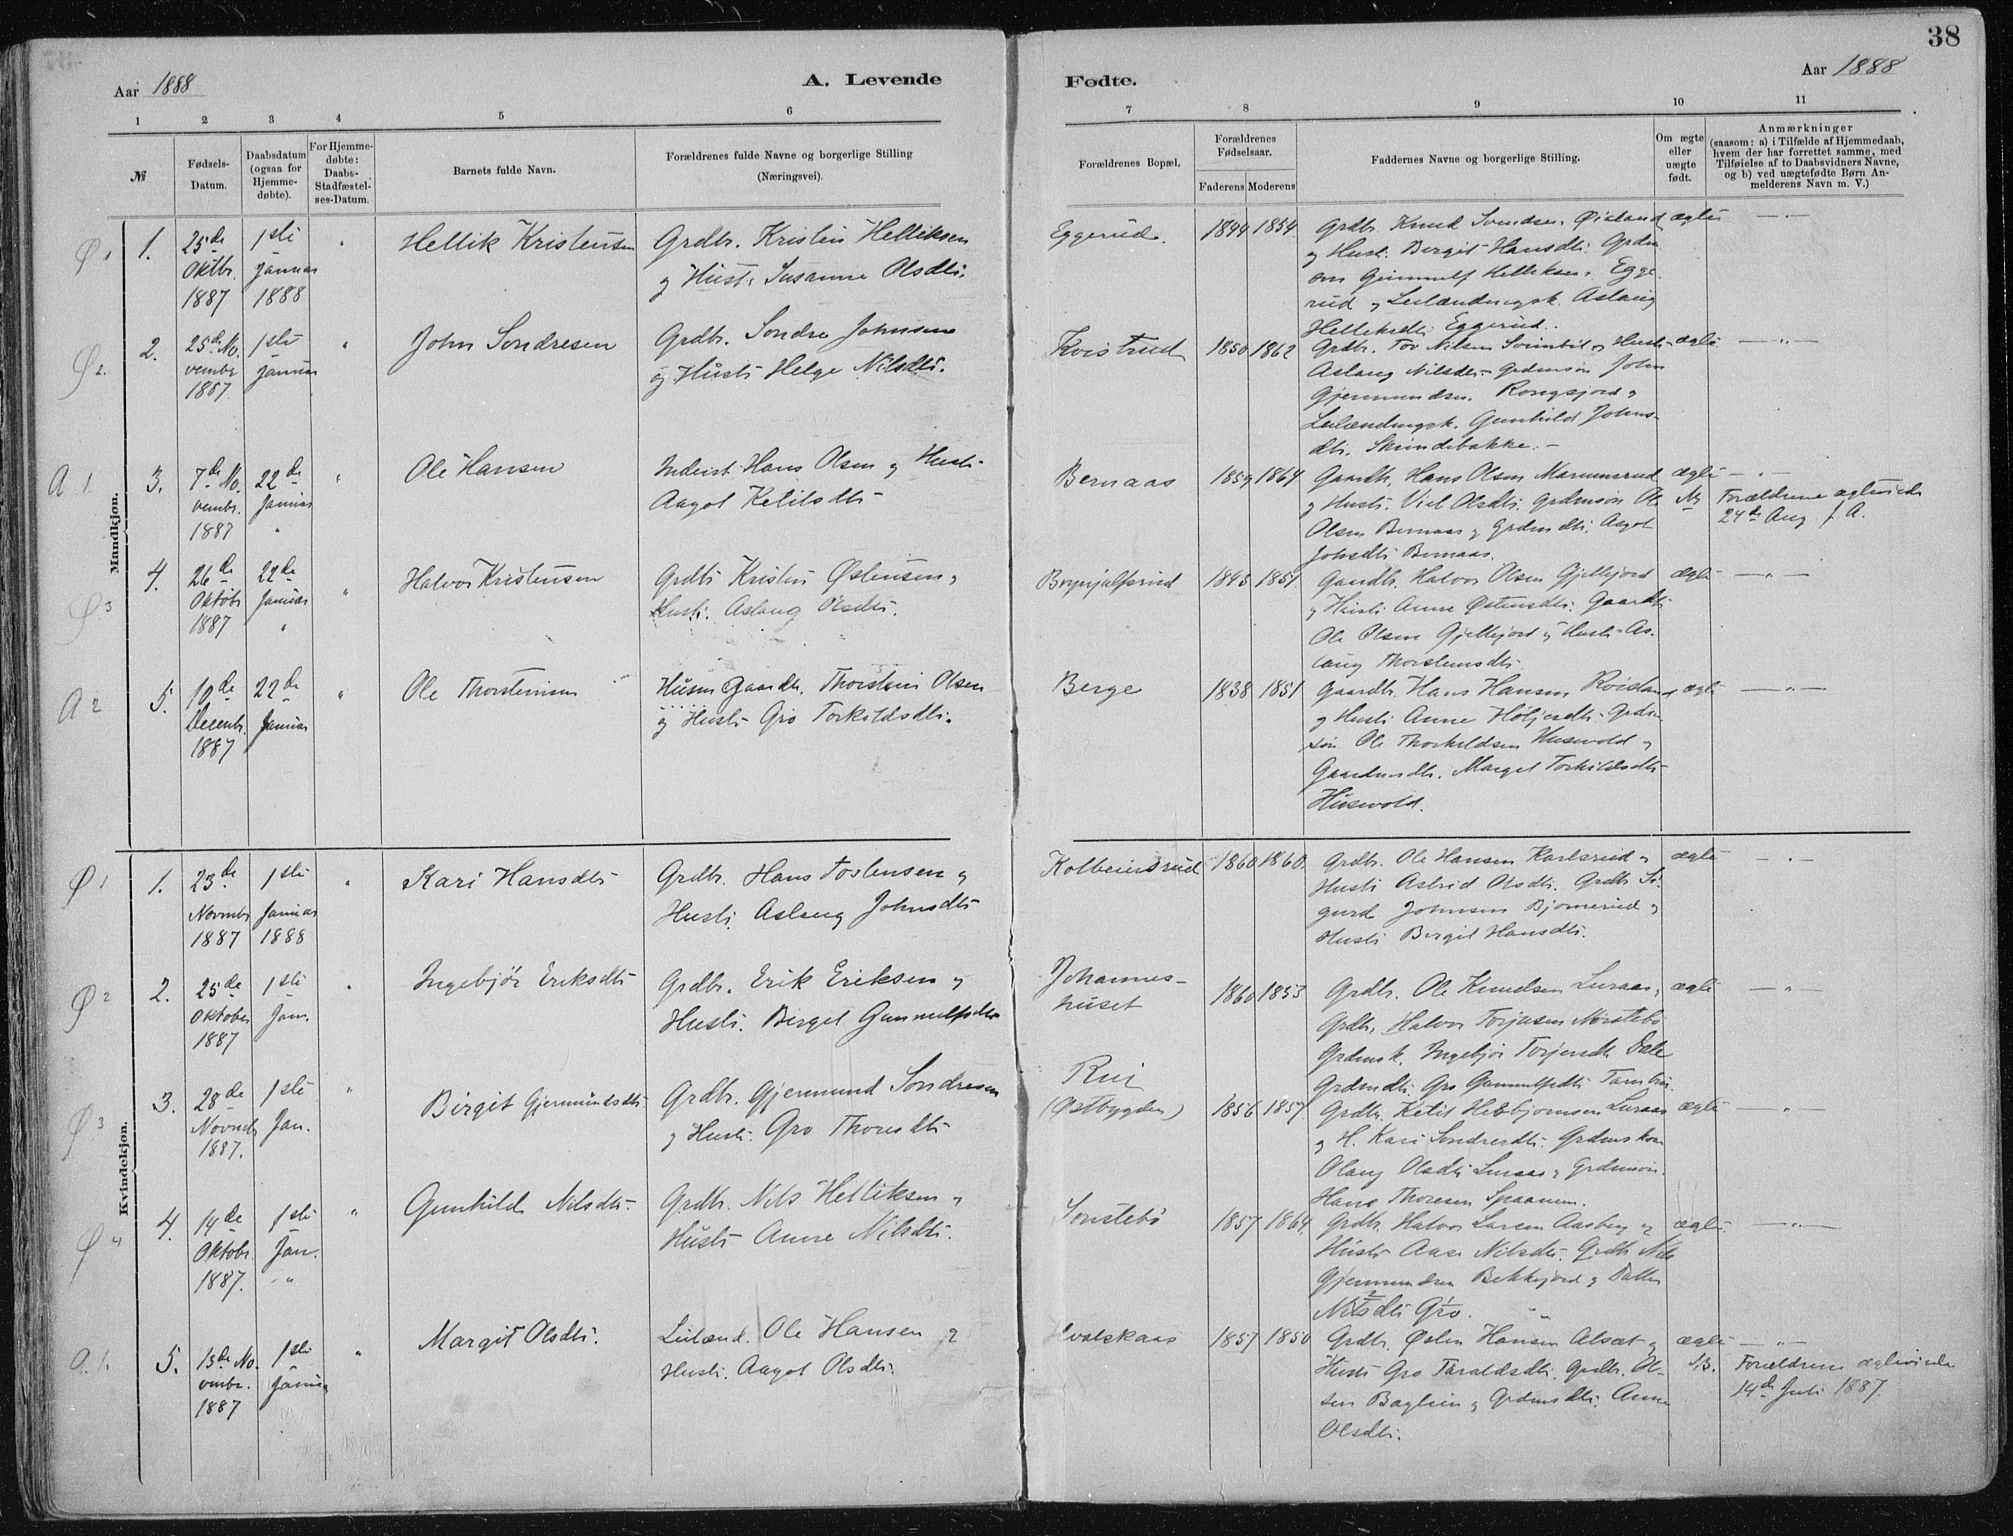 38
Aar 1888
A. Levende
Fødte.
Aar 1888
1 2 3 4 5 6 7 8 9 10 11
№
Fødsels-
Datum.
Daabsdatum
(ogsaa for
Hjemme-
døbte).
For Hjemme-
døbte:
Daabs-
Stadfæstel-
ses-Datum.
Barnets fulde Navn.
Forældrenes fulde Navne og borgerlige Stilling
(Næringsvei).
Forældrenes Bopæl.
Forældrenes
Fødselsaar.
Faderens Moderens
Faddernes Navne og borgerlige Stilling.
Om ægte
eller
uægte
født.
Anmærkninger
(saasom: a) i Tilfælde af Hjemmedaab,
hvem der har forrettet samme, med
Tilføielse af to Daabsvidners Navne,
og b) ved uægtefødte Børn An-
melderens Navn m. V.)
Mandkjøn.
Ø 1
1.
25de
Oktbr.
1887
1ste
Januar
1888
"
Hellik Kristensen
Grdbr. Kristen Helliksen
og Hustr. Susanne Olsdtr.
Eggerud.
1844 1854
Grdbr. Knud Svendsen Øisland
og Hustr. Birgit Hansdtr. Grdm
søn Gunnulf Helliksen Egge-
rud og Leilændingsk. Aslaug
Helliksdtr. Eggerud.
ægte
— " —
Ø 2.
2.
25de No-
vembr
1887.
1ste
Januar
"
John Sondresen
Grdbr. Sondre Johnsen
og Hustr. Helge Nilsdtr.
Kvistrud
1850 1862
Grdbr. Tov Nilsen Svimbil og Hustr.
Aslaug Nilsdtr. Grdmsøn John
Gjermundsen Rongsjord og
Leilændingsk. Gunhild Johns-
dtr. Skindebakke. —
ægte
— " —
A 1.
3.
7de No-
vembr.
1887
22de
Januar
"
"
Ole Hansen
Inderst Hans Olsen og Hustr.
Aagot Ketilsdtr.
Bernaas
1859 1864
Gaardb. Hans Olsen Marumsrud
og Hustr. Viel Olsdtr. Grdmsøn Ole
Olsen Bernaas og Grdmdtr. Aagot
Johsdtr. Bernaas.
ægte
— " —
Forældrene ægteviede
24de Aug. f. A.
Ø 3
4.
26de
Oktobr
1887
22de
Januar
"
"
Halvor Kristensen
Grdbr. Kristen Østensen og
Hustr. Aslaug Olsdtr.
Brynjulfsrud
1845 1851
Gaardb. Halvor Olsen Gjellejord
og Hustr. Anne Østensdtr. Gaardb.
Ole Olsen Gjellejord og Hustr. As-
laug Thorstensdtr.
ægte
— " —
A 2
5.
10de
Decembr.
1887
22de
Januar
"
Ole Thorstensen
Husm Gaardb. Thorstein Olsen
og Hustr. Gro Torkildsdtr.
Berge
1838 1851
Gaardb. Hans Hansen Roisland
og Hustr. Anne Høljesdtr. Grdm-
søn Ole Thorkildsen Husevold og
Gaardmdtr. Margit Torkildsdtr.
Husevold.
ægte
— " —
Kvindekjøn.
Ø 1
1.
23de
Novmbr
1887
1ste
Januar
1888
"
Kari Hansdtr.
Grdbr. Hans Tovlensen og
Hustr. Aslaug Johnsdtr.
Kolbeinsrud
1860 1860.
Grdbr. Ole Hansen Karlsrud og
Hustr. Astrid Olsdtr. Grdbr. Si-
gurd Johnsen Bjørnerud og
Hustr. Birgit Hansdtr.
ægte
— " —
Ø 2
2.
25de
Oktober
1887
1ste
Jan.
"
Ingebjør Eriksdtr.
Grdbr. Erik Eriksen og
Hustr. Birgit Gunnulfsdtr.
Johannes-
huset
1860 1853
Grdbr. Ole Knudsen Luraas,
Grdbr. Halvor Torjusen Nørstebø
Grdmsk. Ingebjør Torjusdtr. Dale
Grdmdtr. Gro Gunnulfsdtr.
ægte
— " —
Ø 3
3.
28de
Novmbr
1887.
1ste
Jan.
"
Birgit Gjermundsdtr.
Grdbr. Gjermund Sondresen
og Hustr. Gro Thorsdtr.
Rui
(Østbygden)
1856 1857
Grdbr. Ketil Herbjørnsen Luraas
og H. Kari Sondresdtr. Grdmskone
Olaug Olsdtr. Luraas og Grdmsøn.
Hans Thoresen Spaanem.
ægte
— " —
Ø 4
4.
14de
Oktobr.
1887.
1ste
Jan.
"
"
Gunhild Nilsdtr.
Grdbr. Nils Helliksen og
Hustr. Anne Nilsdtr.
Sønstebø
1857 1864
Grdbr. Halvor Larsen Aasberg og
Hustr. Aase Nilsdtr. Grdbr. Nils
Gjermundsen Bekkejord og Datter
Nilsdtr. Gro.
ægte
— " —
A. 1.
5.
13de No-
vembr.
1887
1ste
Januar
"
Margit Olsdtr.
Leilænd. Ole Hansen og
Hustr. Aagot Olsdtr.
Hvalskaas
1857 1850
Grdbr. Østen Hansen Alsæt og
Hustr. Gro Taraldsdtr. Grdbr. Ol-
sen Baglien og Grdmdtr. Anne
Olsdtr.
ægte
NB.
— " —
Forældrene ægteviede
14de Juli 1887.